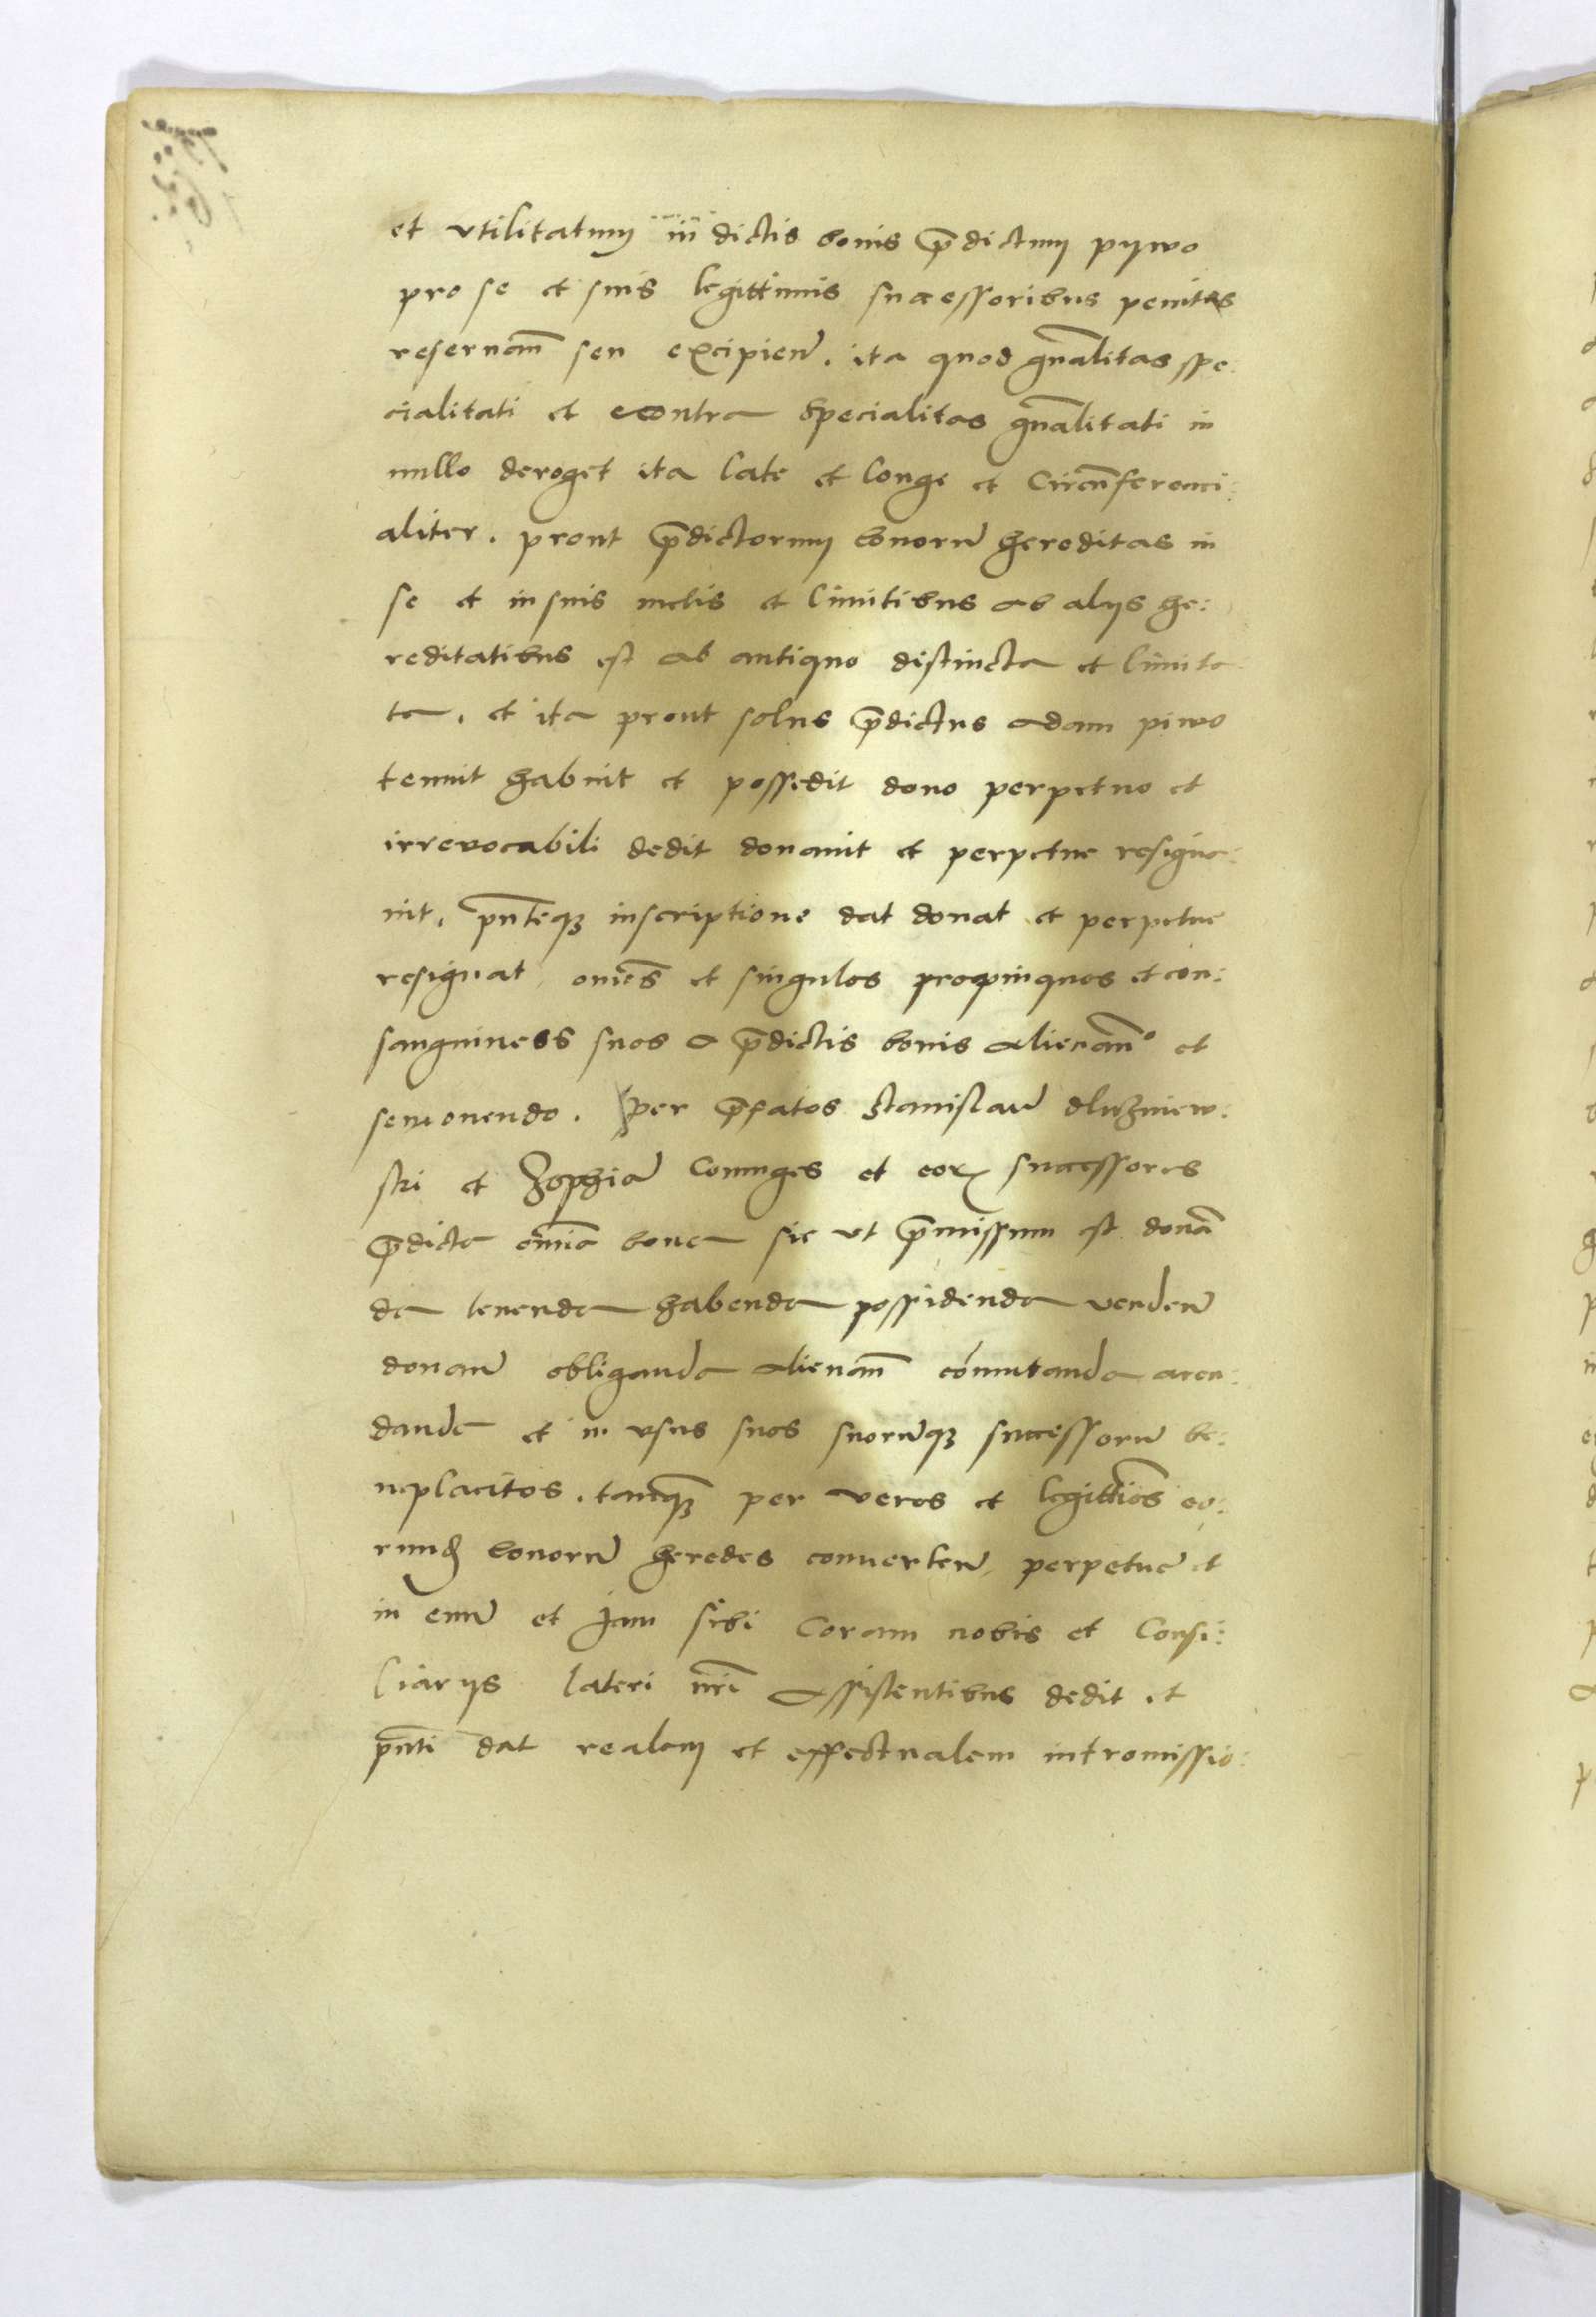 et vtilitatum in dictis bonis p̄dictum pywo
pro se et suis legittimis successoribus penitus
reseruan̄ seu excipien̄. ita quod gn̄alitas spe:
cialitati et econtra specialitas gn̄alitati in
nullo deroget ita late et longe et Circūferenci:
aliter. prout p̄dictorum bonorū hereditas in
se et in suis metis et limitibus ab alijs he:
reditatibus est ab antiquo distincta et limita
ta, et ita prout solus p̄dictus adam piwo
tenuit habuit et possedit dono perpetuo et
irreuocabili dedit donauit et perpetue resigna:
uit, pn̄teqȝ inscriptione dat donat et perpetue
resignat, om̄es et singulos propinquos et con:
sanguineos suos a p̄dictis bonis alienan̄º et
semouendo. per p̄fatos Stanislaū dluzniew:
ski et Zophiā Coniuges et eorꝝ successores
p̄dicta om̄ia bona sic vt p̄missum est donā
da tenenda habenda possidenda venden̄
donan̄ obliganda alienan̄ cōmutanda aren:
danda et in vsus suos suorūqȝ successorū be:
neplacitos. tanqȝ per veros et legittīos eo:
rundē bonorū heredes conuerten̄ perpetue et
in euū et jam sibi Coram nobis et Consi:
liarijs lateri nr̄i assistentibus dedit et
pn̄ti dat realem et effectualem intromissio: